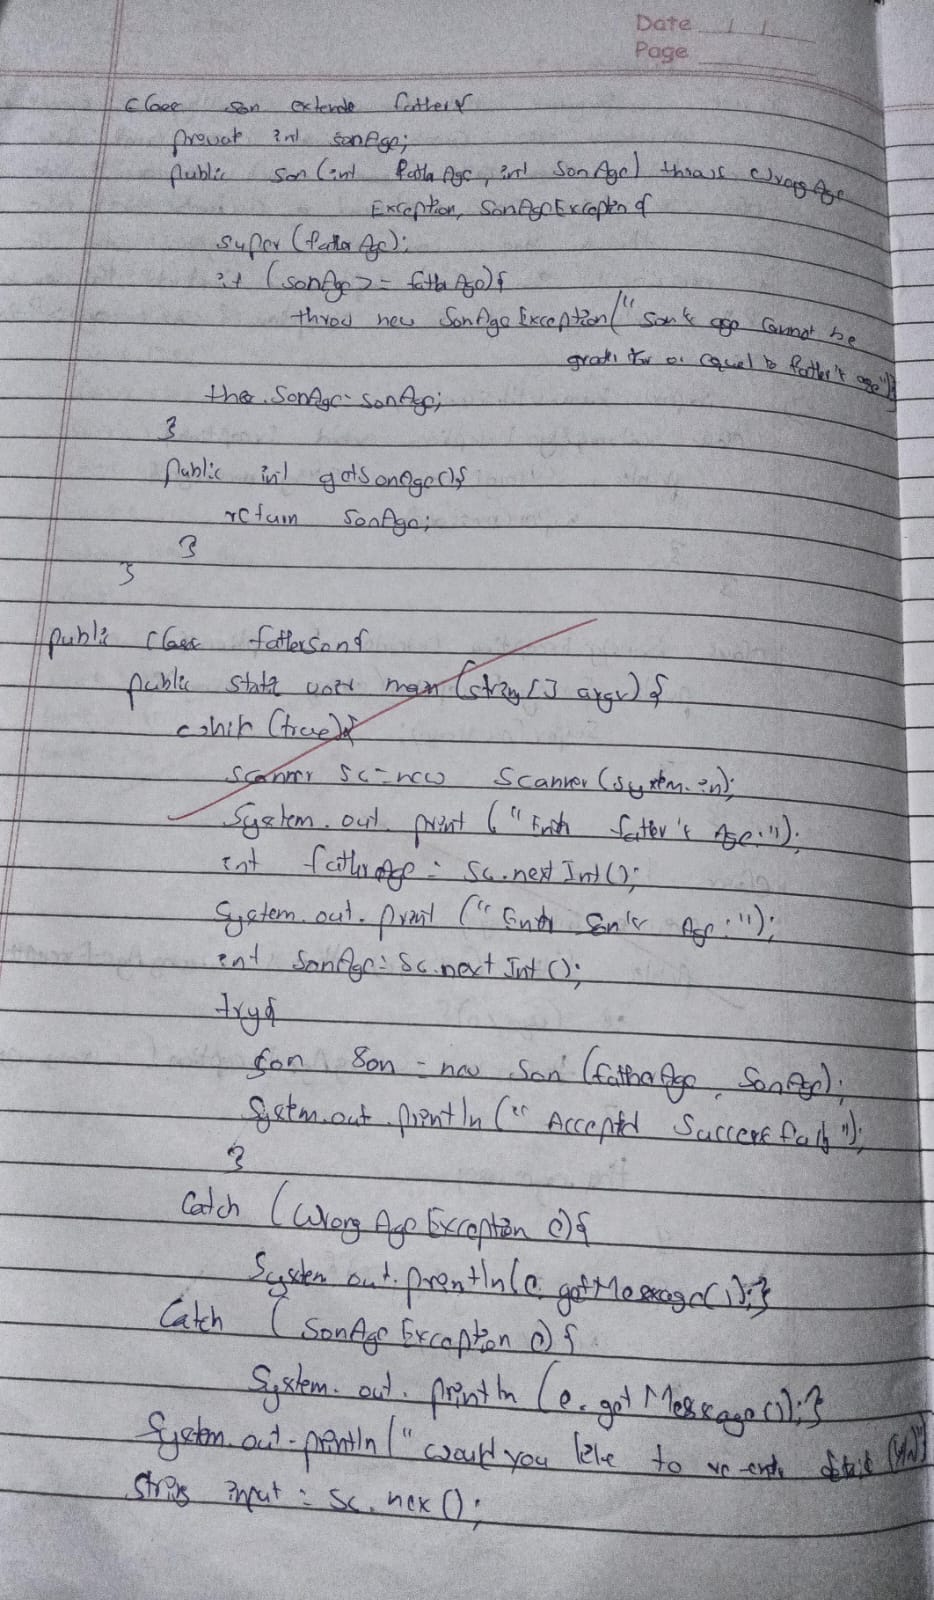 Date / /
Page
class son extends father{
private int sonAge;
public son (int father Age, int Son Age) throws WrongAge
Exception, SonAgeException {
super (father Age);
if (sonAge >= father Age){
throw new SonAge Exception ("Son's age cannot be
greater than or equal to father's age");}
this.SonAge = sonAge;
}
public int getSonAge(){
return SonAge;
}
}
public class fatherSon{
public static void main (string [] args) {
while (true){
Scanner sc = new Scanner (System.in);
System.out.print ("Enter father's Age:");
int fatherAge = sc.next Int();
System.out.print ("Enter Son's Age:");
int SonAge = sc.next Int ();
try{
Son Son = new Son (fatherAge, SonAge);
System.out.println (" Accepted Successfully");
}
Catch (Wrong Age Exception e){
System out.println(e.getMessage());}
Catch ( SonAge Exception e) {
System. out. println (e. getMessage());}
System.out.println (" would you like to re-enter (Y/N)")
String input = sc. nex ();